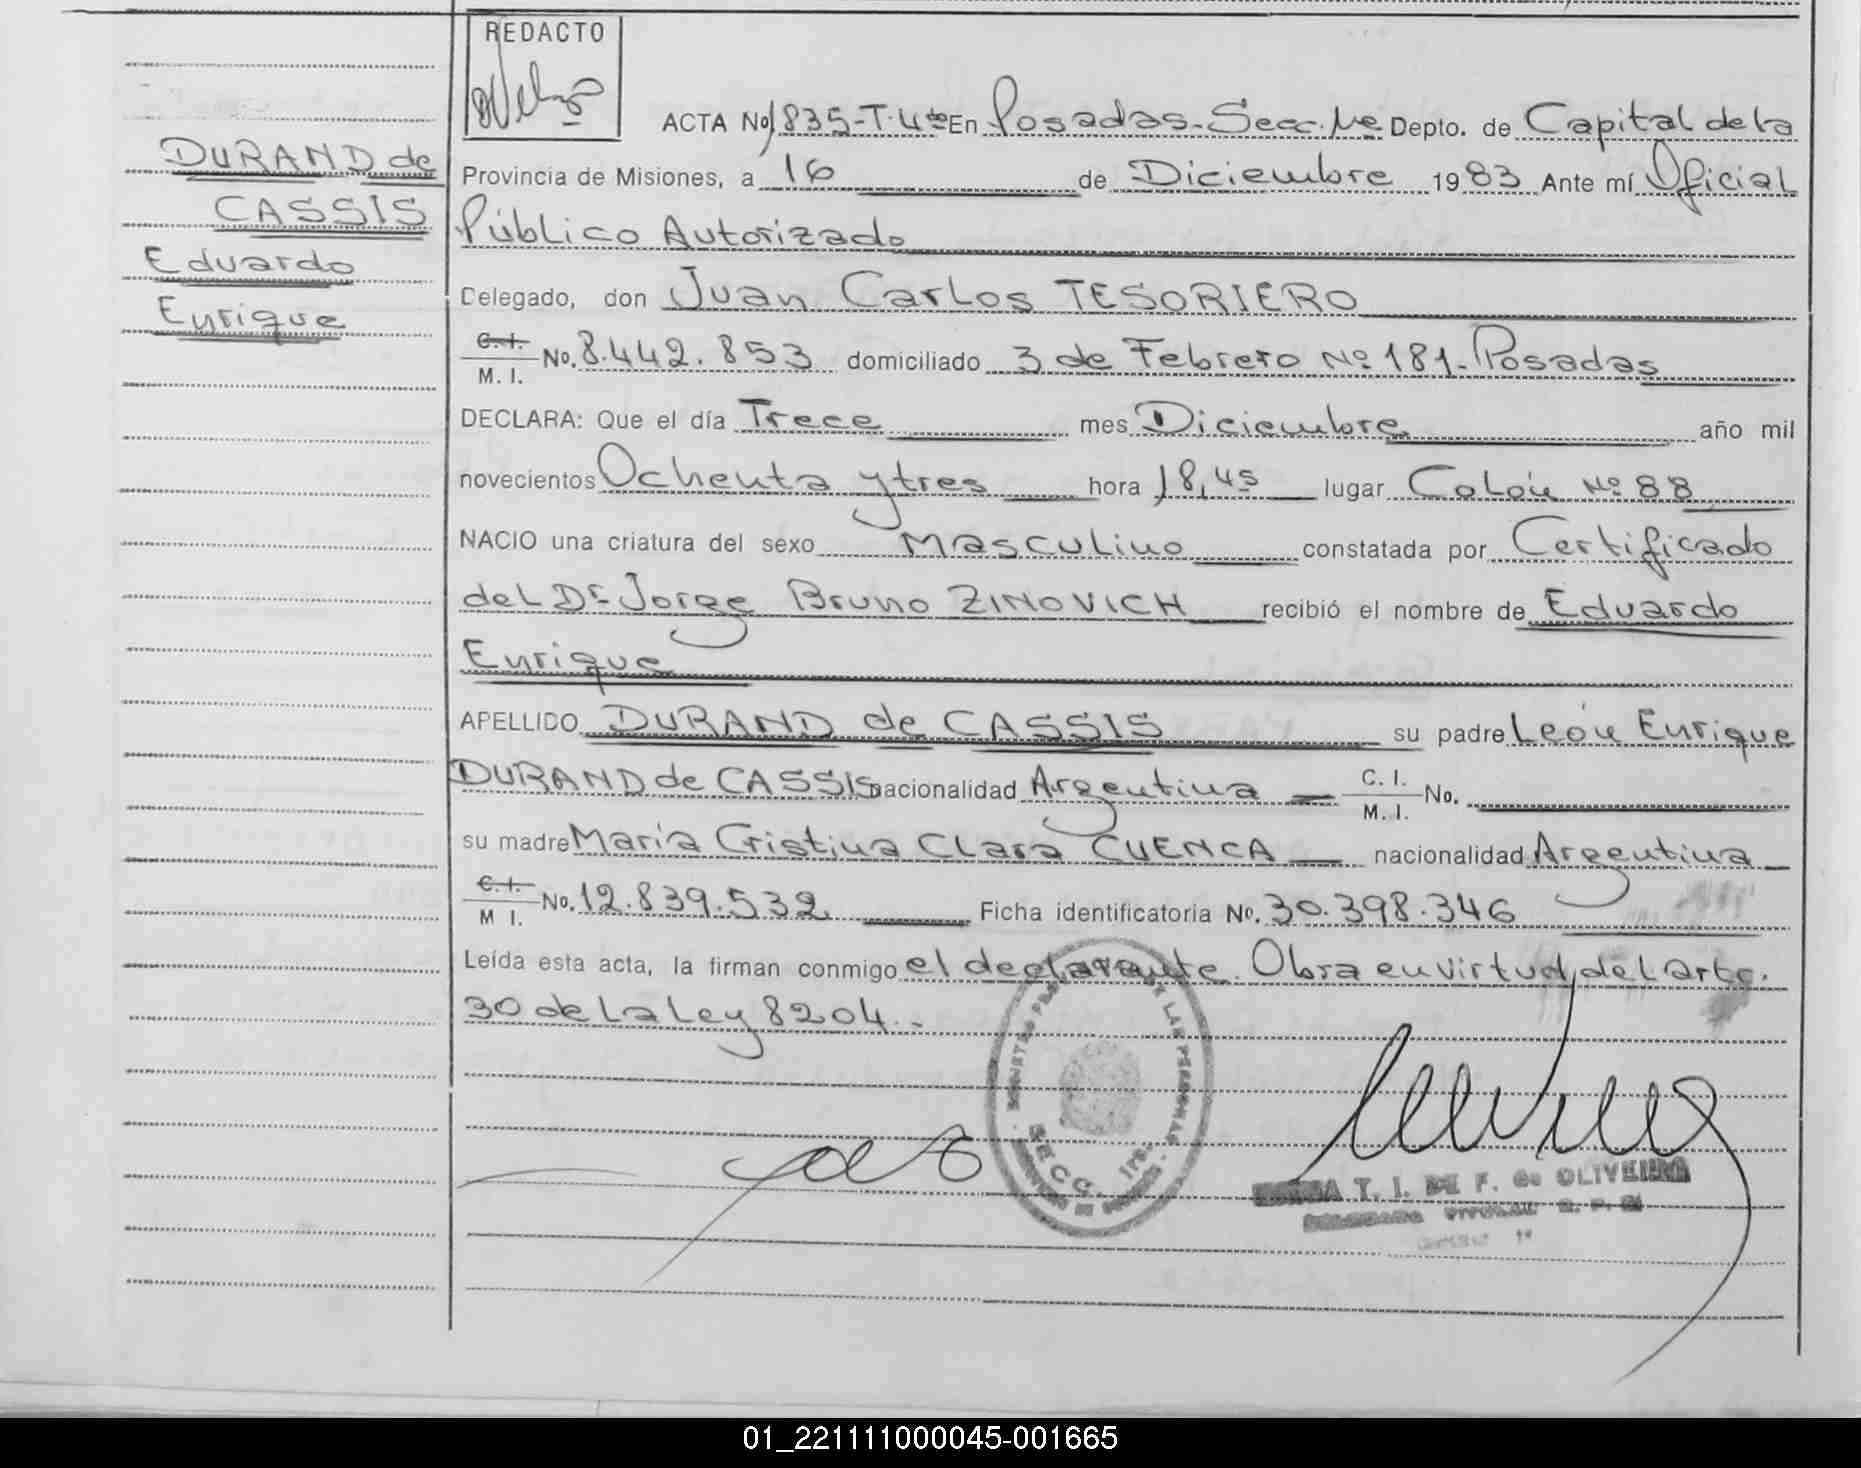 REDACTO
ACTA No 1835-T.4to En Posadas-Secc. Depto. de Capital de la
Provincia de Misiones, a 16 de Diciembre 1983 Ante mí Oficial
Público Autorizado
DURAND de
CASSIS
Eduardo
Enrique
Delegado, don Juan Carlos TESORIERO
C.I.
M. I. No. 8.442.853 domiciliado 3 de Febrero Nº 181-Posadas
DECLARA: Que el día Trece mes Diciembre año mil
novecientos Ochenta y tres hora 18,45 lugar Colón Nº 88
NACIO una criatura del sexo Masculino constatada por Certificado
del Dr Jorge Bruno ZINOVICH recibió el nombre de Eduardo
Enrique
APELLIDO DURAND de CASSIS su padre León Enrique
DURAND de CASSIS nacionalidad Argentina C. I.
M. I. No.
su madre María Cristina Clara CUENCA nacionalidad Argentina
C.I.
M I. No. 12.839.532 Ficha identificatoria No. 30.398.346
Leída esta acta, la firman conmigo el declarante. Obra en virtud del art.
30 de la Ley 8204.-
DE LAS PERSONAS
SECC. 1ra.
T. I. DE F. de OLIVEIRA
01_221111000045-001665